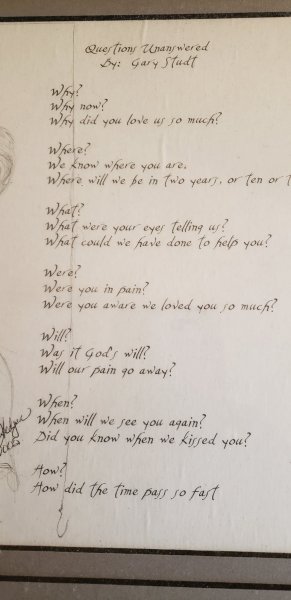 Questions Unanswered
By: Gary Studt
Why?
Why now?
Why did you love us so much?
Where?
We know where you are.
Where will we be in two years, or ten or
What?
What were your eyes telling us?
What could we have done to help you?
Were?
Were you in pain?
Were you aware we loved you so much?
Will?
Was it God's will?
Will our pain go away?
When?
When will we see you again?
Did you know when we kissed you?
How?
How did the time pass so fast